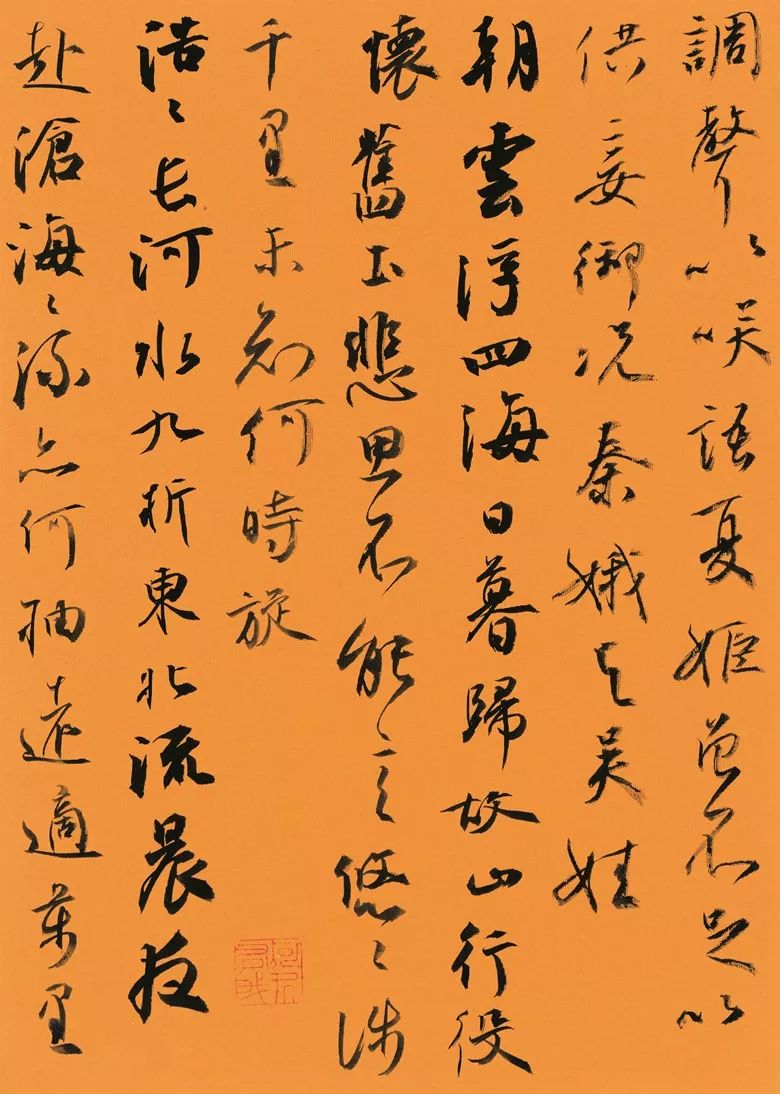 調聲以咲語夏姬曾不足以
供妾御况秦娥与吴娃
朝雲浮四海日暮歸故山行役
懷舊土悲思不能言悠〻涉
千里未知何時旋
浩〻長河水九折東北流晨夜
赴滄海〻流亦何抽遠適萬里